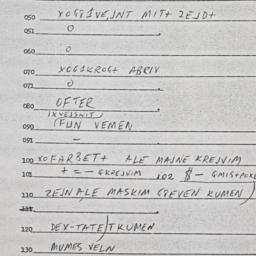 050 YOGSIVE,INT MIT+ ZEJD+
051 0
060 0
070 YOGIKROG+ ABRIV
071 0
080 OFTER
090 (FUN VEMEN
091 –
100 XOFARBET+ ALE MAJNE KREJVIM
101 + = – GKREJVIM 102 $ –
110 ZEJN ALE MASKIM GREVEN KUMEN)
111
120 DEX-TATE)TKUMEN
130 MUMES VELN